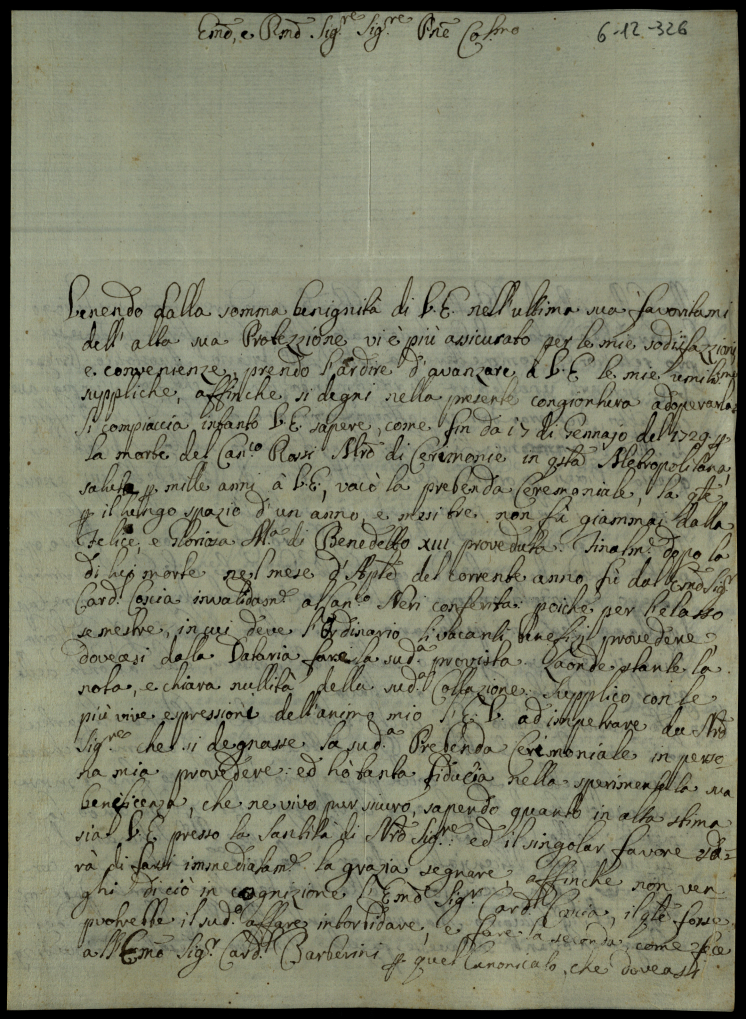 Em̃o, e Rm̃o Sig.re Sig.re Pñe Co.lmo
6-12-326
Venendo dalla somma benignità di V.E. nell'ultima sua favoritami
dell'alta sua Protezzione vi è più assicurato per le mie sodisfazzioni
e convenienze, prendo l'ardire d'avanzare à V.E. le mie umiliss.me
suppliche, affinche si degni nella presente congiontura adoperarla.
Si compiaccia intanto V.E. sapere, come fin da 17 di Gennajo del 1729 ꝑ
la morte del Can.co Rossi Mrõ di Cerimonie in q̃sta Metropolitana,
saluta ꝑ mille anni à V.E., vacò la prebenda Ceremoniale, la q̃le
ꝑ il lungo spazio d'un anno, e mesi tre non fù giammai dalla
Felice, e Gloriosa M.a di Benedetto XIII proveduta. Finalm.e dopo la
di lui morte nel mese d'Aprle del corrente anno fù dal Em̃o Sig.r
Card. Coscia invalidam.e al Can.co Neri conferita: poiche per l'elasso
semestre, in cui deve l'Ordinario li vacanti benefizij provedere,
doveasi dalla Dataria fare la sud.a provista. Laonde stante la
nota, e chiara nullità della sud.a Collazione, supplico con le
più vive espressioni dell'animo mio l'E.V. ad impetrare da Nrõ
Sig.re che si degnasse la sud.a Prebenda Cerimoniale in perso-
na mia provedere: ed hò tanta fiducia nella sperimentata sua
beneficenza, che ne vivo pur sicuro, sapendo quanto in alta stima
sia V.E. presso la Santità di Nrõ Sig.re: ed il singolar favore sa-
rà di farsi immediatam.e la grazia segnare, affinche non ven-
ghi di ciò in cognizione l'Em̃o Sig.r Card. Coscia, il q̃le forse
potrebbe il sud.o affare intorbidare, e fare la seconda, come fece
all'Em̃o Sig.r Card. Barberini ꝑ quel Canonicato, che doveasi